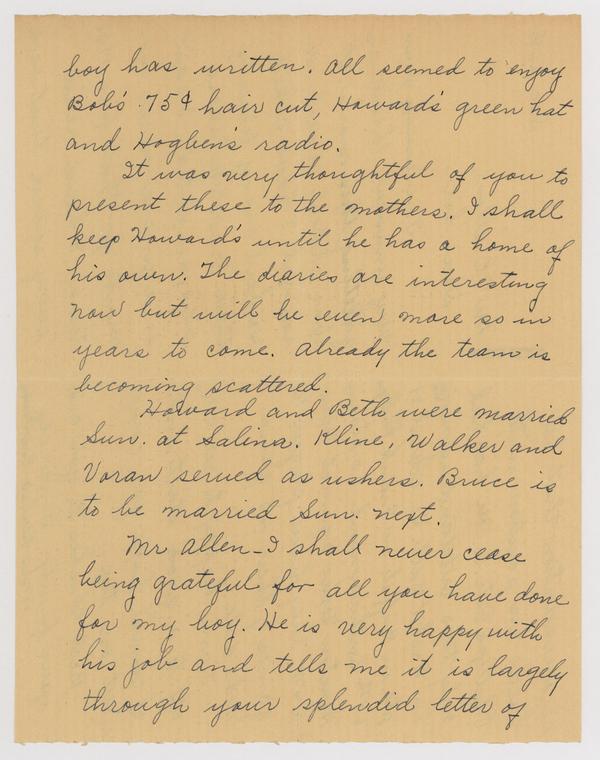 boy has written. All seemed to enjoy
Bob's .75¢ hair cut, Howard's green hat
and Hogben's radio.
It was very thoughtful of you to
present these to the mothers. I shall
keep Howard's until he has a home of
his own. The diaries are interesting
now but will be even more so in
years to come. Already the team is
becoming scattered.
Howard and Beth were married
Sun. at Salina. Kline, Walker and
Voran served as ushers. Bruce is
to be married Sun. next.
Mr Allen - I shall never cease
being grateful for all you have done
for my boy. He is very happy with
his job and tells me it is largely
through your splendid letter of